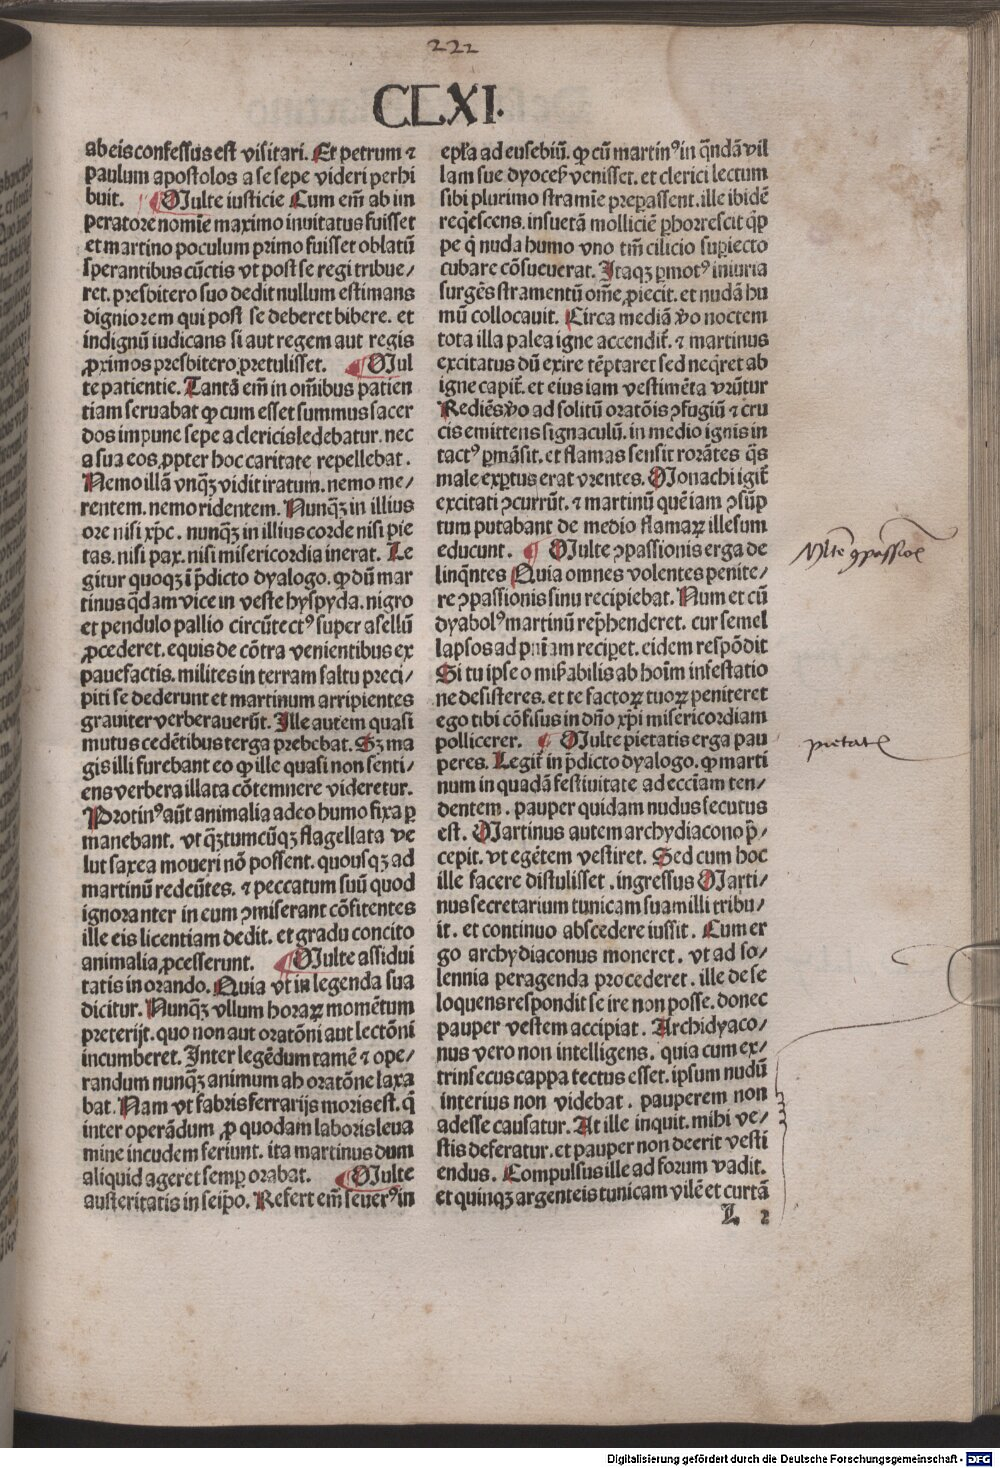 222
CLXI.
ab eis confessus est visitari. Et petrum ⁊
paulum apostolos a se sepe videri perhi
buit. ¶ Multe iusticie Cum em̄ ab im
peratore nomīe maximo inuitatus fuisset
et martino poculum primo fuisset oblatū
sperantibus cūctis vt post se regi tribue/
ret. presbitero suo dedit nullum estimans
digniorem qui post se deberet bibere. et
indignū iudicans si aut regem aut regis
ꝓximos presbitero pretulisset. ¶ Mul
te patientie. Tantā em̄ in om̄ibus patien
tiam seruabat ꝙ cum esset summus sacer
dos impune sepe a clericis ledebatur. nec
a sua eos ꝓpter hoc caritate repellebat.
Nemo illā vnqꝫ vidit iratum. nemo me/
rentem. nemo ridentem. Nunqꝫ in illius
ore nisi xp̄c. nunqꝫ in illius corde nisi pie
tas. nisi pax. nisi misericordia inerat. Le
gitur quoqꝫ ī p̄dicto dyalogo. ꝙ dū mar
tinus q̄dam vice in veste hyspyda. nigro
et pendulo pallio circūtectꝰ super asellū
ꝓcederet. equis de cōtra venientibus ex
pauefactis. milites in terram saltu preci/
piti se dederunt et martinum arripientes
grauiter verberauerūt. Ille autem quasi
mutus cedētibus terga prebebat. Sꝫ ma
gis illi furebant eo ꝙ ille quasi non senti/
ens verbera illata cōtemnere videretur.
Protinꝰ aūt animalia adeo humo fixa ꝑ
manebant. vt qꝫtumcūqꝫ flagellata ve
lut saxea moueri nō possent. quousqꝫ ad
martinū redeūtes. ⁊ peccatum suū quod
ignoranter in eum ꝯmiserant cōfitentes
ille eis licentiam dedit. et gradu concito
animalia ꝓcesserunt. ¶ Multe assidui
tatis in orando. Quia vt in legenda sua
dicitur. Nunqꝫ vllum horaꝝ momētum
preterijt. quo non aut oratōni aut lectōni
incumberet. Inter legēdum tamē ⁊ ope/
randum nunqꝫ animum ab oratōne laxa
bat. Nam vt fabris ferrarijs moris est. q̄
inter operādum ꝓ quodam laboris leua
mine incudem feriunt. ita martinus dum
aliquid ageret semꝑ orabat. ¶ Multe
austeritatis in seip̄o. Refert em̄ seuerꝰ in
epl̄a ad eusebiū. ꝙ cū martinꝰ in q̄ndā vil
lam sue dyoceß venisset. et clerici lectum
sibi plurimo stramīe preparassent. ille ibidē
reqescens. insuetā molliciē ꝑhorrescit q̄ꝑ
pe q̄ nuda humo vno tm̄ cilicio suꝑiecto
cubare cōsueuerat. Itaqꝫ ꝑmotꝰ iniuria
surgēs stramentū om̄e ꝓiecit. et nudā hu
mū collocauit. Circa mediā ṽo noctem
tota illa palea igne accendit̄. ⁊ martinus
excitatus dū exire tēptaret sed neqret ab
igne capit̄. et eius iam vestimēta vrūtur
Rediēs ṽo ad solitū oratōis ꝯfugiū ⁊ cru
cis emittens signaculū. in medio ignis in
tactꝰ ꝑmāsit. et flamas sensit rorātes q̄s
male exꝑtus erat vrentes. Monachi igit̄
excitati ꝯcurrūt. ⁊ martinū quē iam ꝯsūp
tum putabant de medio flamaꝝ illesum
educunt. ¶ Multe ꝯpassionis erga de
linq̄ntes Quia omnes volentes penite/
re ꝯpassionis sinu recipiebat. Num et cū
dyabolꝰ martinū rep̄henderet. cur semel
lapsos ad pn̄iam reciꝑet. eidem respōdit
Si tu ipse o miẞabilis ab hoīm infestatio
ne desisteres. et te factoꝝ tuoꝝ peniteret
ego tibi cōfisus in dn̄o xp̄i misericordiam
pollicerer. ¶ Multe pietatis erga pau
peres. Legit̄ in p̄dicto dyalogo. ꝙ marti
num in quadā festiuitate ad ecc̄iam ten/
dentem. pauper quidam nudus secutus
est. Martinus autem archydiacono p̄/
cepit. vt egētem vestiret. Sed cum hoc
ille facere distulisset. ingressus Marti/
nus secretarium tunicam suam illi tribu/
it. et continuo abscedere iussit. Cum er
go archydiaconus moneret. vt ad so/
lennia peragenda procederet. ille de se
loquens respondit se ire non posse. donec
pauper vestem accipiat. Archidyaco/
nus vero non intelligens. quia cum ex/
trinsecus cappa tectus esset. ipsum nudū
interius non videbat. pauperem non
adesse causatur. At ille inquit. mihi ve/
stis deferatur. et pauper non deerit vesti
endus. Compulsus ille ad forum vadit.
et quinqꝫ argenteis tunicam vilē et curtā
L 2
Mlte ꝯpassioē
pietatis
Digitalisierung gefördert durch die Deutsche Forschungsgemeinschaft - DFG